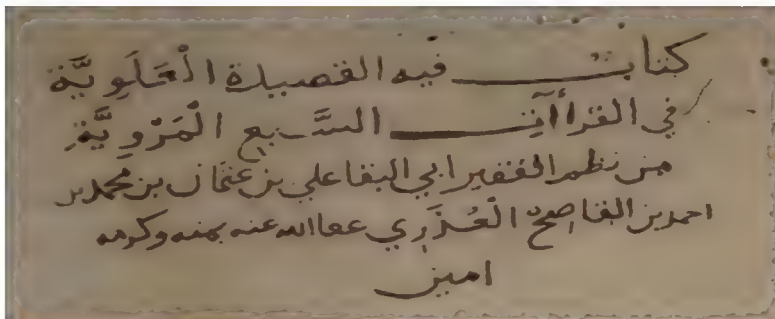 كتاب فيه القصيدة الْعَلَوِيَّة
في القرأآت السَّبع الْمَرْوِيَّةِ
من نظم الفقير ابي البقا علي بن عثمان بن محمد بن
احمد بن القاصحُ الْعُذَرِي عفا الله عنه بمنه وكرمه
امين